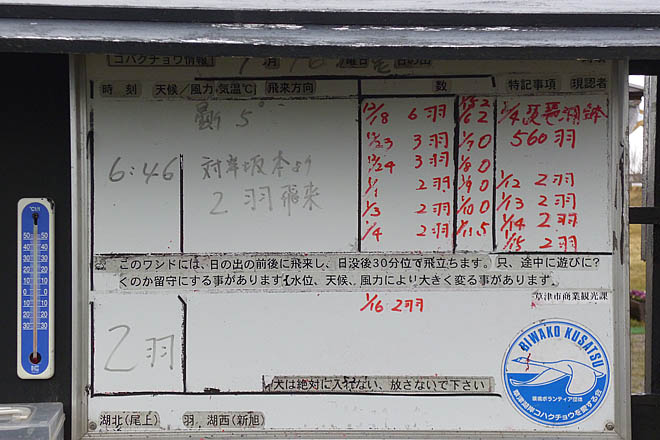 コハクチョウ情報 月 日 曜日 日の出
時刻 天候／風力、気温℃） 飛来方向 数 特記事項 現認者
曇 5°
6:46 対岸坂本より
2羽飛来
12/18 6羽
12/23 3羽
12/24 3羽
1/1 2羽
1/3 2羽
1/4 2羽
1/5 2
1/6 2
1/7 0
1/8 0
1/9 0
1/10 0
1/11 5
1/4 琵琶湖
560羽
1/12 2羽
1/13 2羽
1/14 2羽
1/15 2羽
このワンドには、日の出の前後に飛来し、日没後30分位で飛立ちます。只、途中に遊びに?
くのか留守にする事があります【水位、天候、風力により大きく変る事があります。
草津市商業観光課
1/16 2羽
2羽
犬は絶対に入れない、放さないで下さい
湖北(尾上) 羽、湖西(新旭)
BIWAKO KUSATSU
環境ボランティア団体
草津湖岸コハクチョウを愛する会
℃
50 50
40 40
30 30
20 20
10 10
0 0
10 10
20 20
30 30